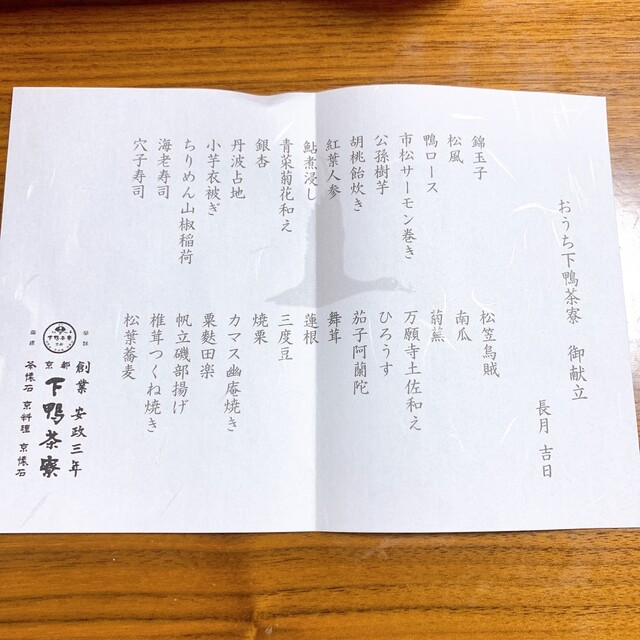 おうち下鴨茶寮　御献立
長月 吉日
錦玉子
松風
鴨ロース
市松サーモン巻き
公孫樹芋
胡桃飴炊き
紅葉人参
鮎煮浸し
青菜菊花和え
銀杏
丹波占地
小芋衣被ぎ
ちりめん山椒稲荷
海老寿司
穴子寿司
松笠烏賊
南瓜
菊蕪
万願寺土佐和え
ひろうす
茄子阿蘭陀
舞茸
蓮根
三度豆
焼栗
カマス幽庵焼き
粟麩田楽
帆立磯部揚げ
椎茸つくね焼き
松葉蕎麦
創業 安政三年
京都
下鴨茶寮
茶懐石 京料理 京懐石